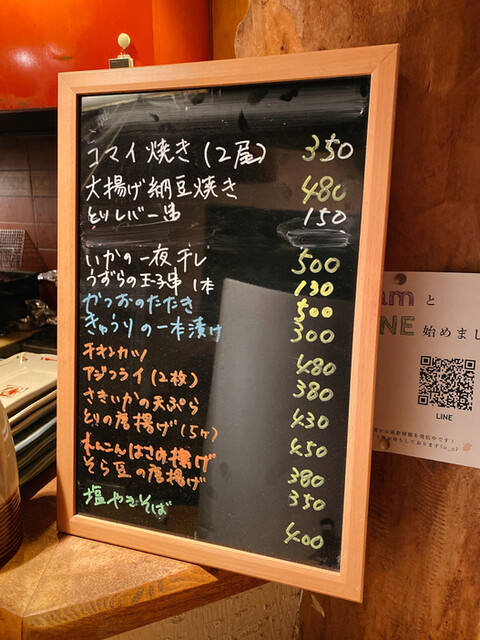 コマイ焼き(2尾) 350
大揚げ納豆焼き 480
とりレバー串 150
いかの一夜干し 500
うずらの玉子串 1本 130
かつおのたたき 500
きゅうりの一本漬け 300
チキンカツ 480
アジフライ(2枚) 380
さきいかの天ぷら 430
とりの唐揚げ(5ヶ) 450
れんこんはさみ揚げ 380
そら豆の唐揚げ 350
塩やきそば 400
am と
INE 始めまし
LINE